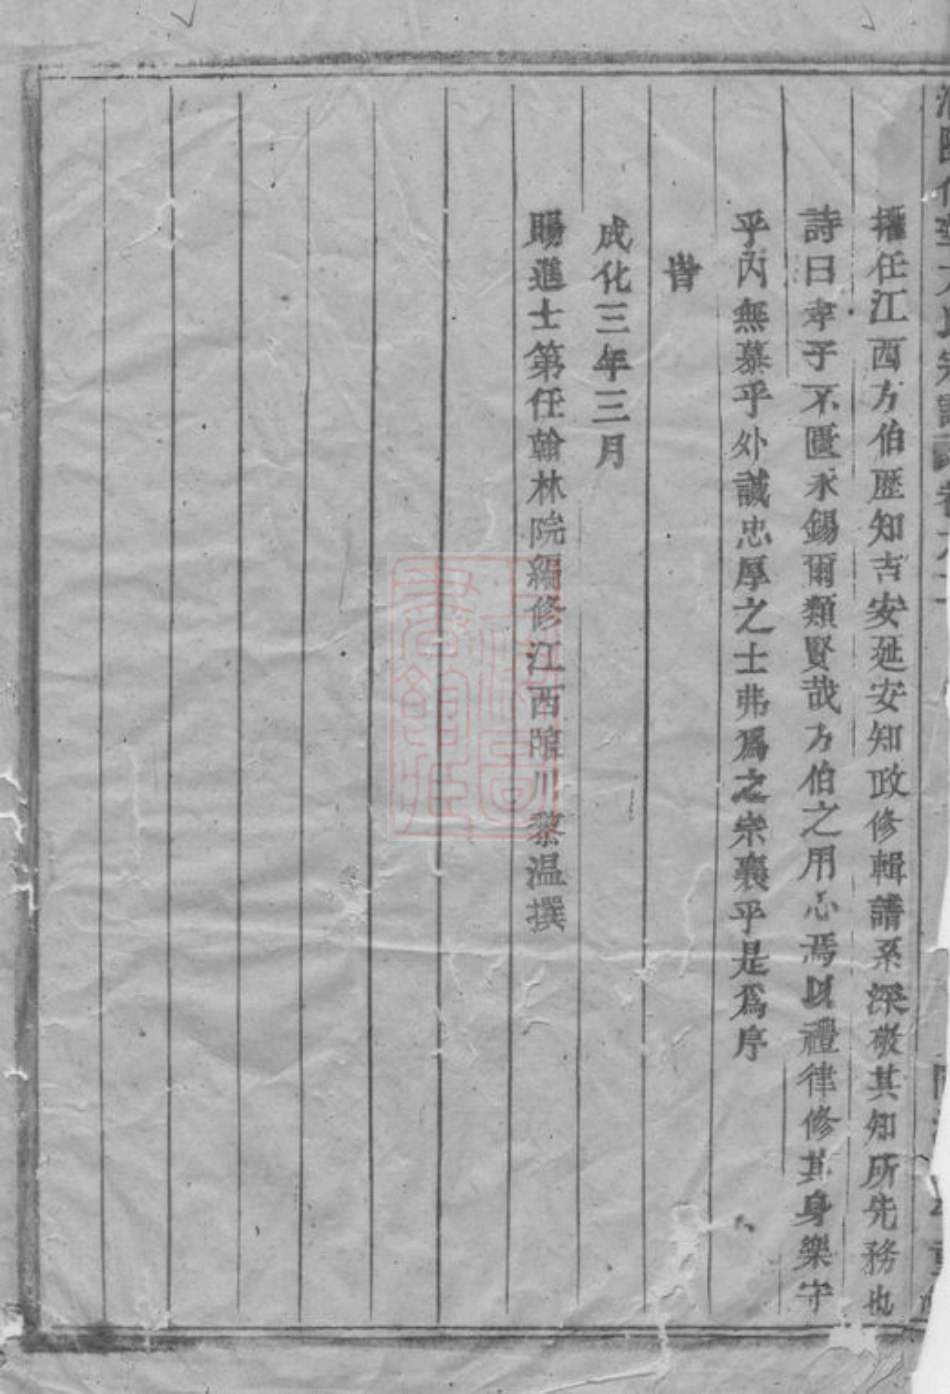 擢任江西方伯歷知吉安延安知政修輯譜系深敬其知所先務也
詩曰孝子不匱永錫爾類賢哉方伯之用心焉以禮律修其身樂守
乎內無慕乎外誠忠厚之士弗爲之崇襄乎是爲序
旹
成化三年三月
賜進士第任翰林院編修江西臨川黎温撰